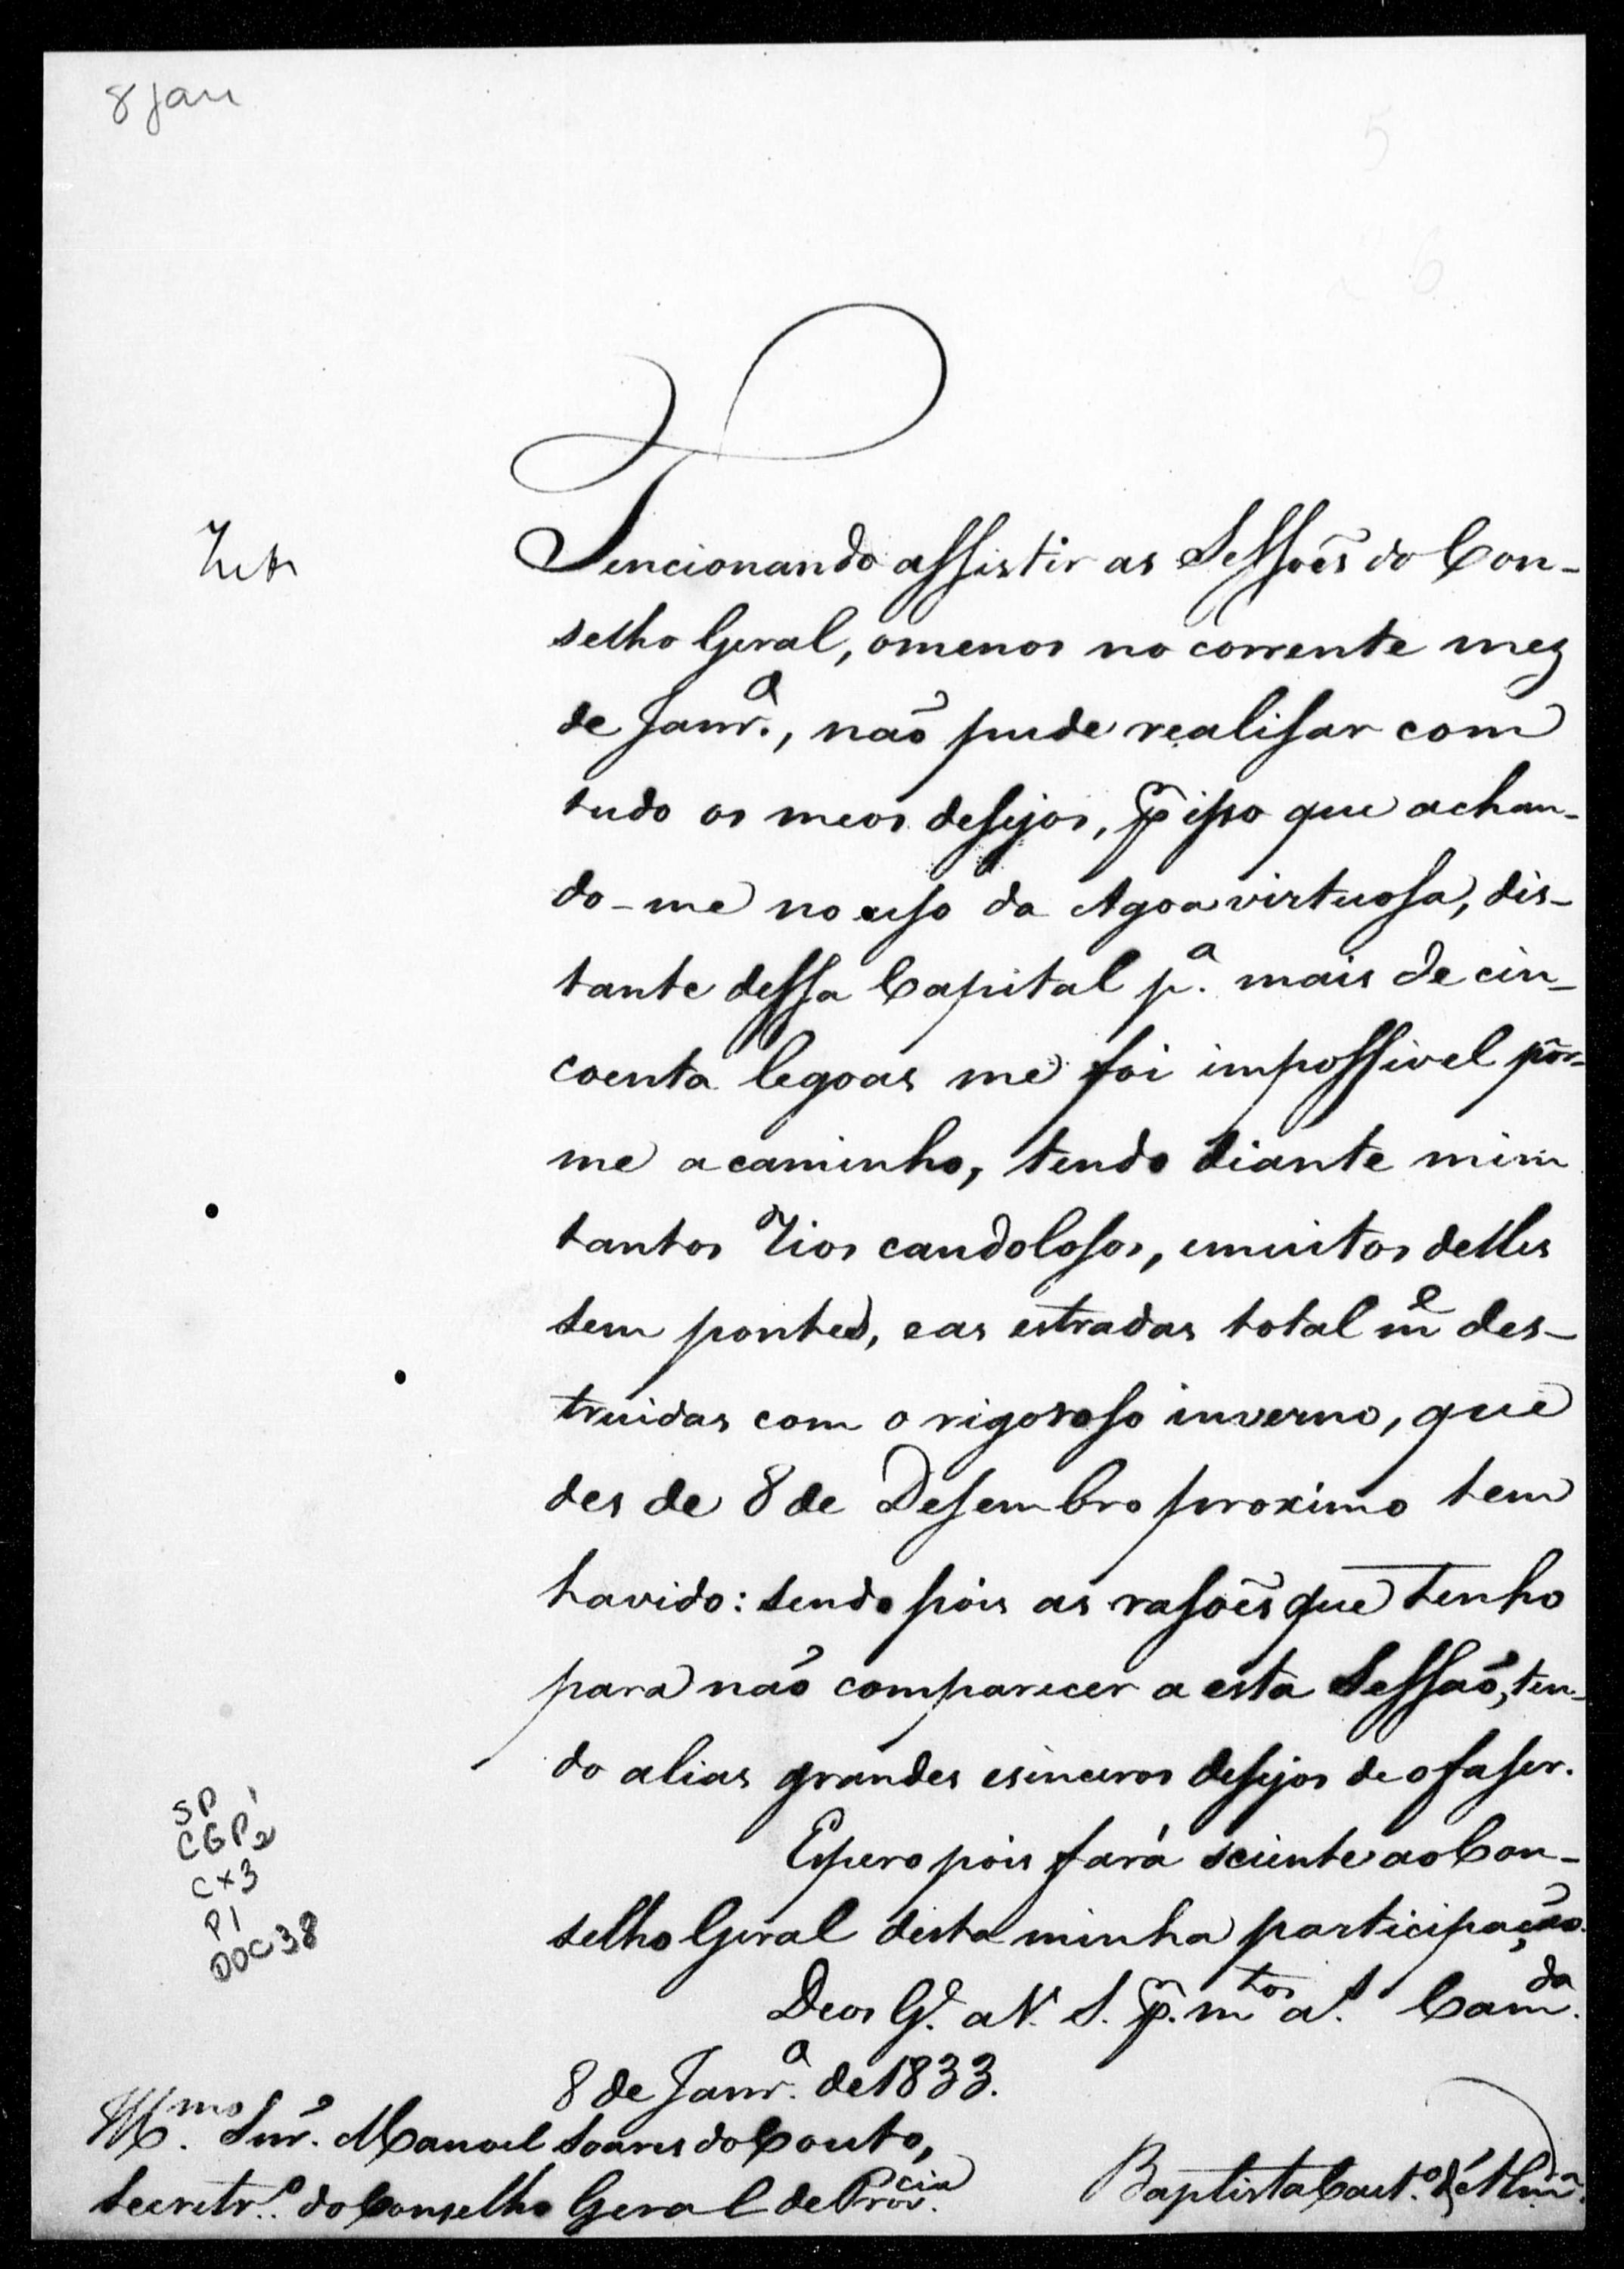 8 Jan
Tencionando assistir as Sessoẽs do Con-
selho Geral, omenos no corrente mez
de Janr.º, naõ pude realisar com
tudo os meos desejos, p̃ isso que achan-
do-me no uso da Agoa virtuosa, dis-
tante dessa Capital p.ª mais de cin-
coenta legoas me foi impossivel pôr-
me a caminho, tendo diante mim
tantos Rios caudolosos, emuitos delles
sem pontes, eas estradas total m.e des-
truidas com o rigoroso inverno, que
des de 8 de Desembro proximo tem
havido: sendo pois as rasoẽs que tenho
para naõ comparecer a esta Sessaõ, ten-
do alias grandes esinceros desejos de o faser.
Espero pois fará sciente ao Con-
selho Geral desta minha participação.
Deos G.e a V. S. p̃. m.tos a.s Cam.da
8 de Janr.º de 1833.
Ill.mo Snr. Manoel Soares do Couto,
Secretr.º do Conselho Geral de Prov.cia
Baptista Caet.º d'Alm.da
SP
CGP1
2
CX3
P1
DOC 38